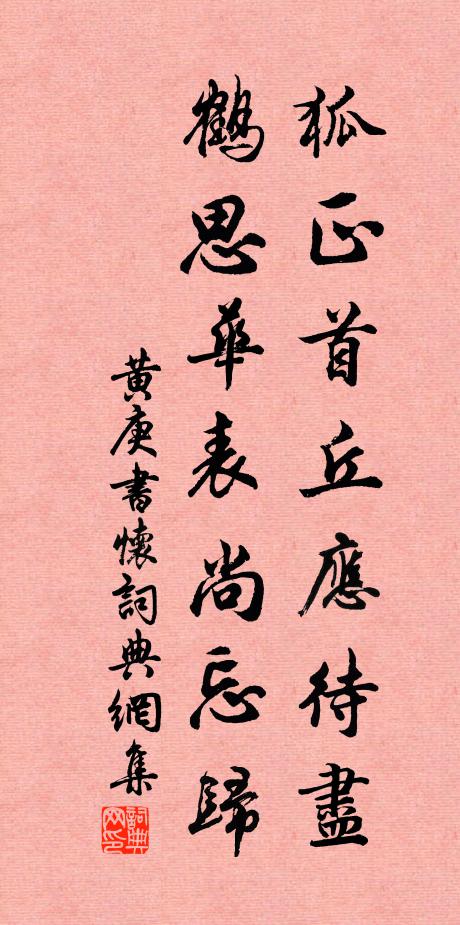 狐正首丘應待盡
鶴思華表尚忘歸
黄庚書懷詞典網集
詞典网印